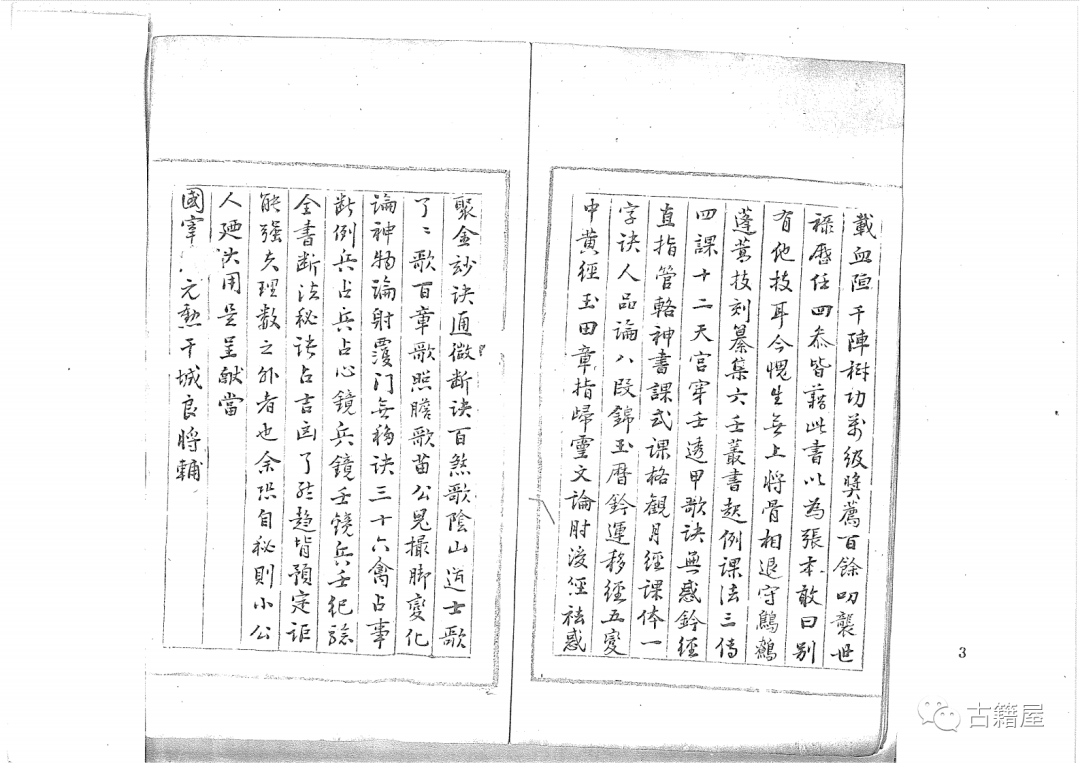 載血洹千陣樹功萬級獎薦百餘叨襲世
祿歷任四叅皆藉此書以為張本敢曰別
有他技耳今愧生無上將骨相退守鷦鷯
蓬蒿技刻纂集六壬叢書起例課法三傳
四課十二天官穿壬透甲歌訣無惑鈐經
直指管輅神書課式課格觀月經課体一
字訣人品論八段錦玉曆鈐運移經五變
中黄經玉田章指歸靈文論肘後經袪惑
聚金訟訣通微斷訣百煞歌陰山道士歌
了々歌百章歌照膽歌苗公鬼撮脚變化
論神物論射覆門無移訣三十六禽占事
斷例兵占兵占心鏡兵鏡壬鐃兵壬紀驗
全書斷法秘訣占吉凶了然趨背預定詎
能强夫理數之外者也余恐自秘則小公
人廼汏用是呈献當
國宰元勲干城良將輔
3
古籍屋